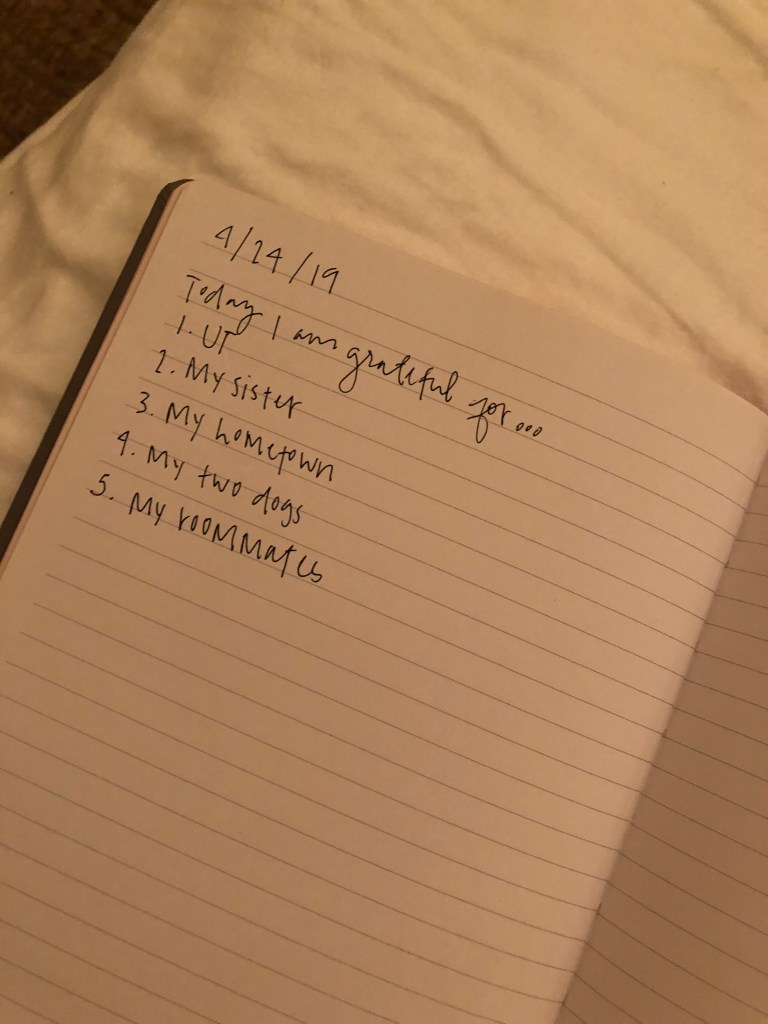 4/24/19
Today I am grateful for...
1. UT
2. My sister
3. My hometown
4. My two dogs
5. My roommates